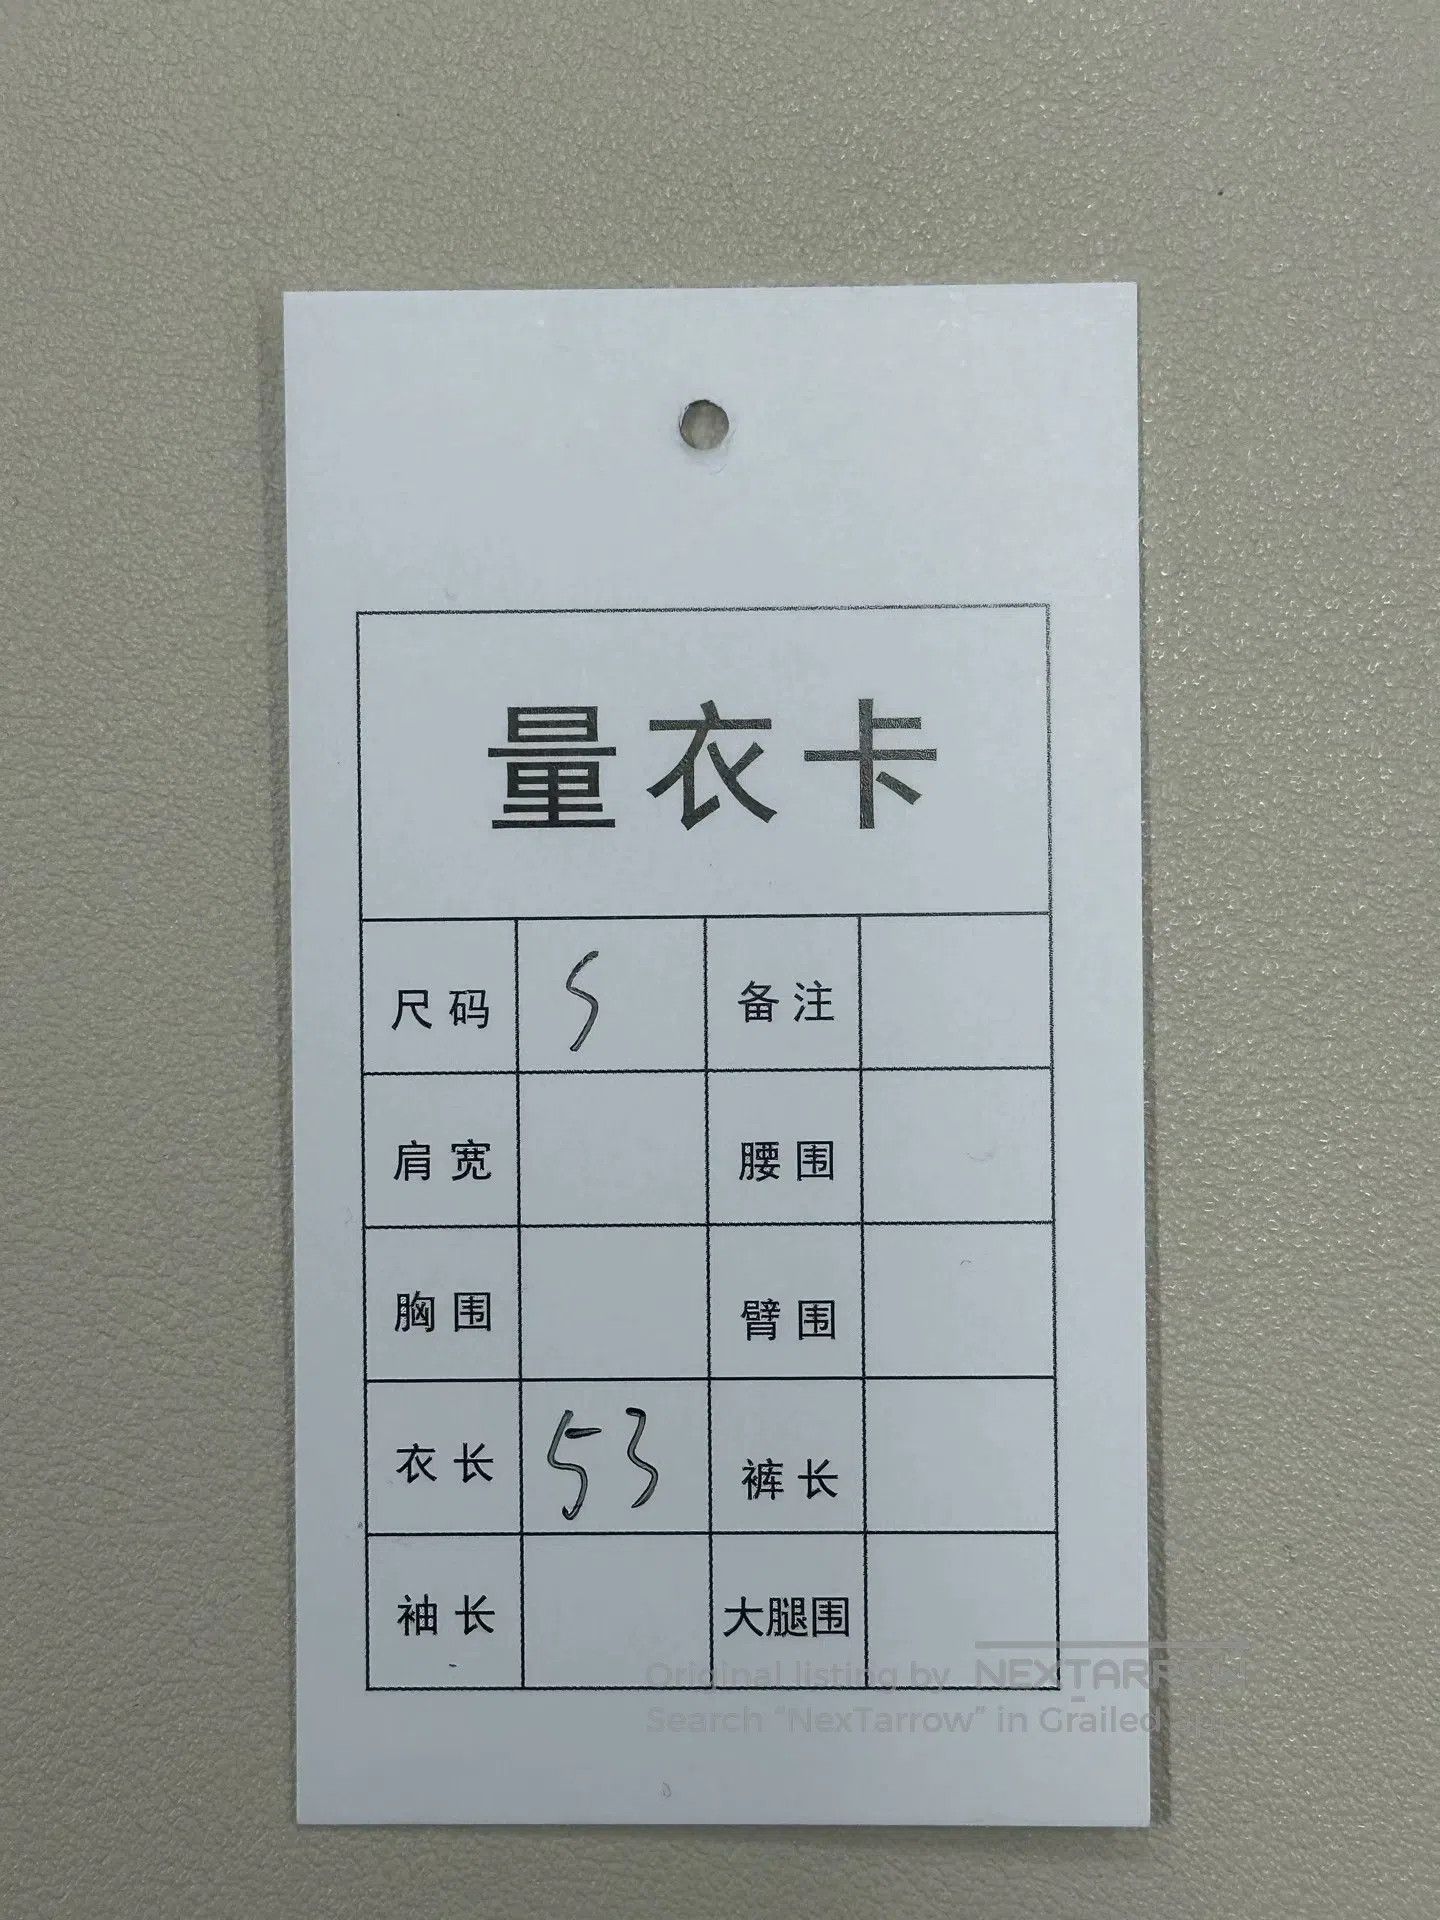 量衣卡
尺码 S 备注
肩宽 腰围
胸围 臂围
衣长 53 裤长
袖长 大腿围
Original listing by NEXTARROW
Search “NexTarrow” in Grailed